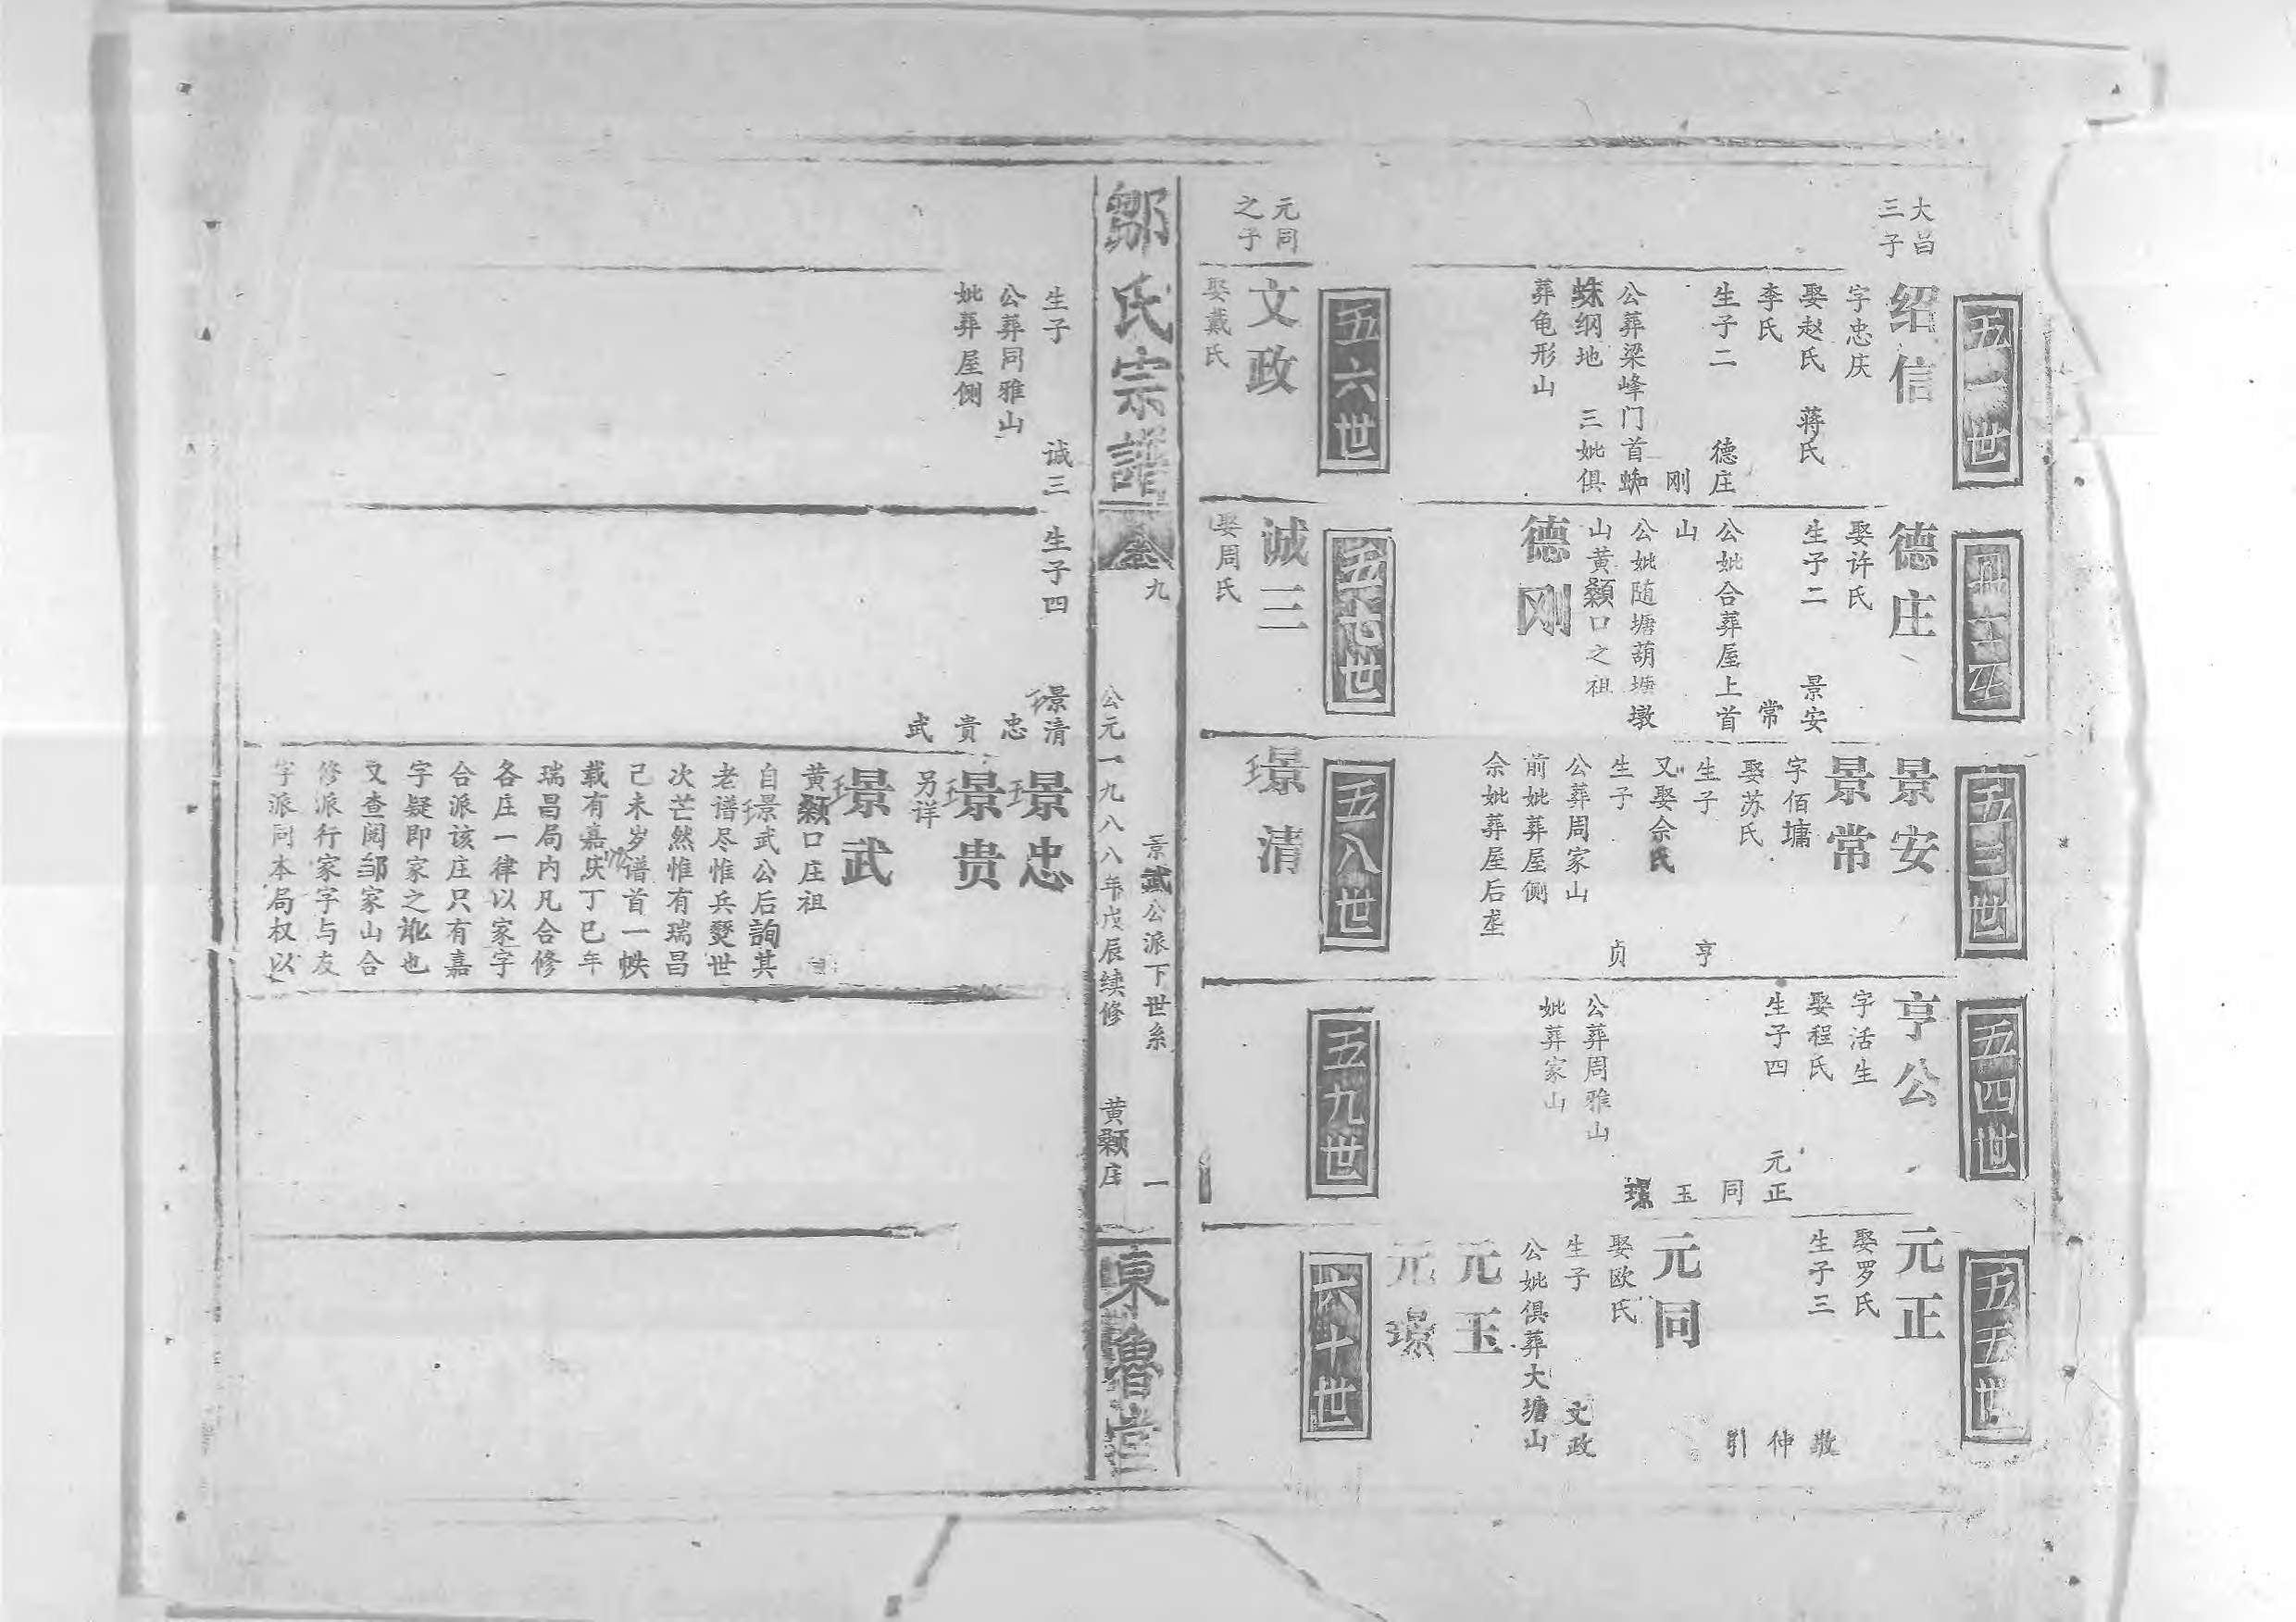 五一世
大昌
三子
绍信
字忠庆
娶赵氏 蒋氏
李氏
生子二 德庄
刚
公葬梁峰门首蜘
蛛纲地 三妣俱
葬龟形山
德庄
娶许氏
生子二 景安
常
公妣合葬屋上首
山
德刚
公妣随塘葫塘墩
山黄颡口之祖
五三世
景安
景常
字佰墉
娶苏氏
生子 亨
又娶佘氏
生子 贞
公葬周家山
前妣葬屋侧
佘妣葬屋后垄
五四世
亨公
字活生
娶程氏
生子四 元正
同
玉
璟
公葬周雅山
妣葬家山
五五世
元正
娶罗氏
生子三 敬
仲
引
元同
娶欧氏
生子 文政
公妣俱葬大塘山
元玉
元璟
五六世
元同
之子
文政
娶戴氏
五七世
诚三
娶周氏
五八世
璟清
五九世
六十世
鄒氏宗譜
卷九
景武公派下世系 一
公元一九八八年戊辰续修 黄颡庄
東魯堂
生子 诚三
公葬同雅山
妣葬屋侧
生子四 璟清
忠
贵
武
璟忠
璟贵
另详
璟武
黄颡口庄祖
自璟武公后詢其
老谱尽惟兵燹世
次芒然惟有瑞昌
己未岁谱首一帙
载有嘉庆丁巳年
瑞昌局内凡合修
各庄一律以家字
合派该庄只有嘉
字疑即家之讹也
又查阅邹家山合
修派行家字与友
字派同本局权以